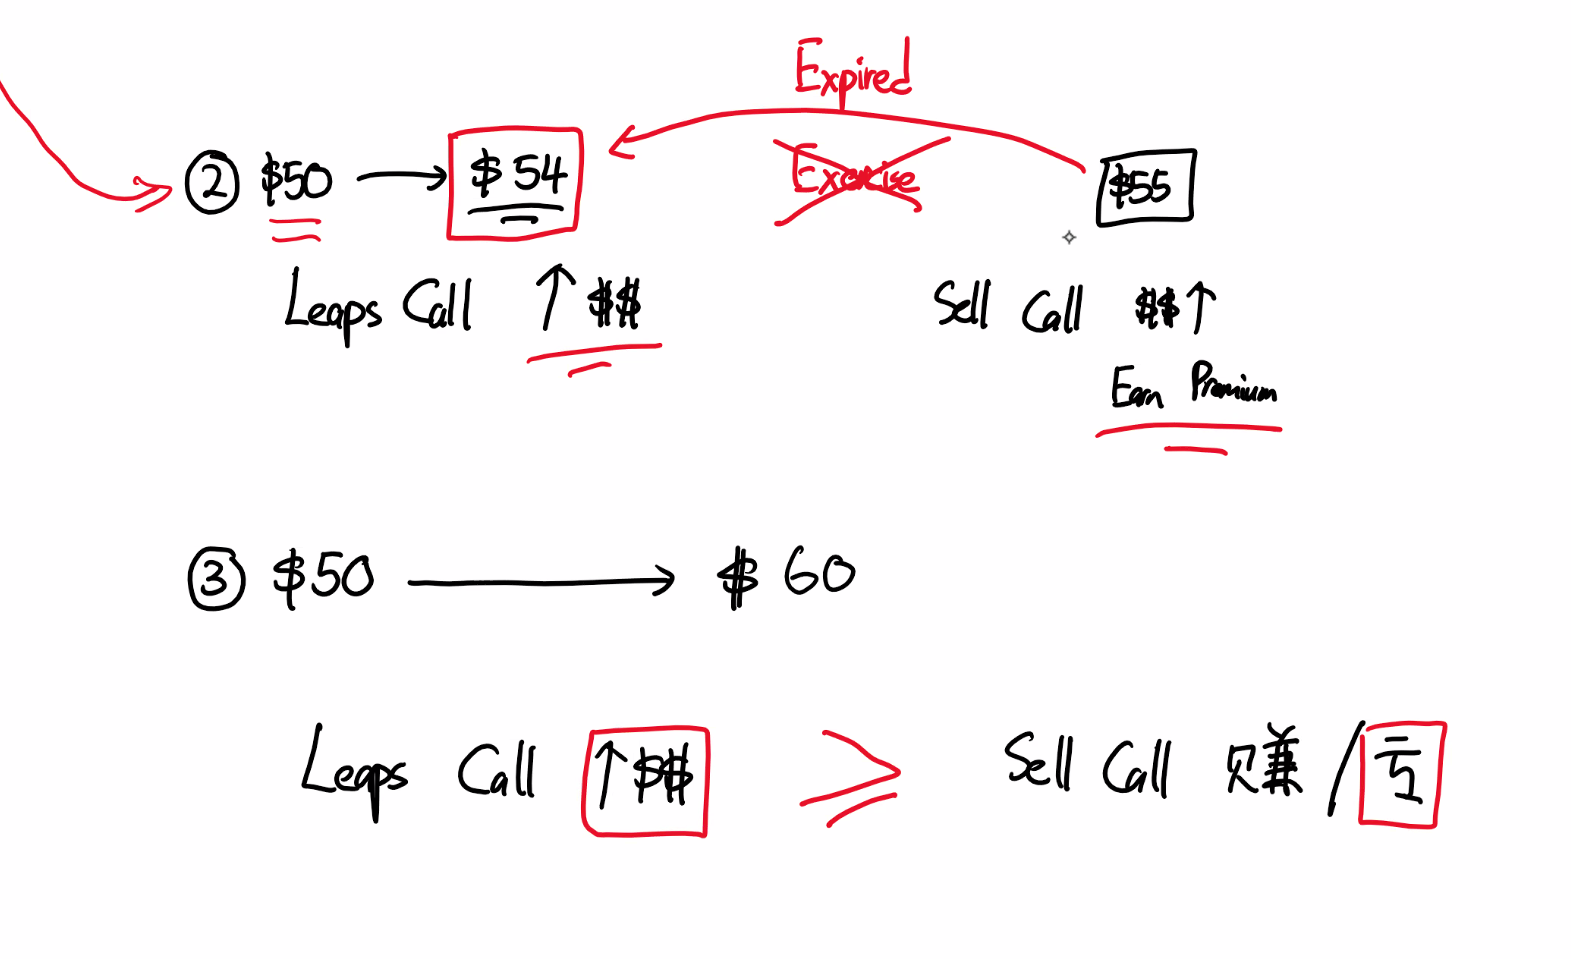 Expired
② $50 → $54 Exercise $55
Leaps Call ↑ $$ Sell Call $$ ↑
Earn Premium
③ $50 → $60
Leaps Call ↑ $$ ≥ Sell Call 赚/亏